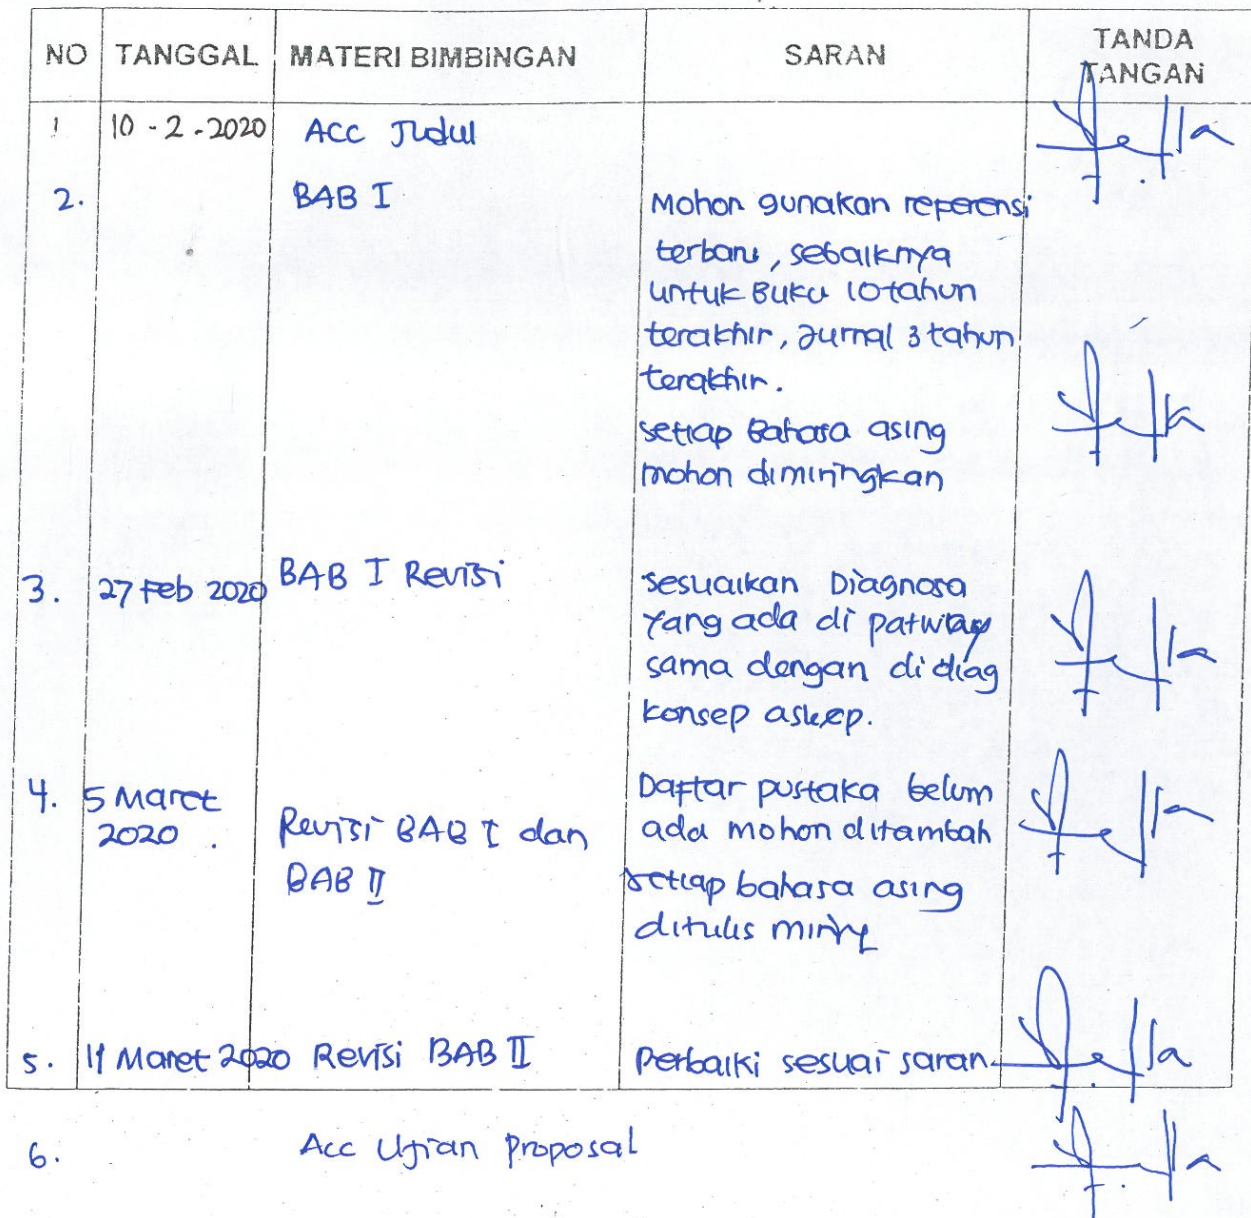 NO TANGGAL MATERI BIMBINGAN SARAN TANDA TANGAN
1 10 - 2 - 2020 ACC Judul
2. BAB I Mohon gunakan referensi
terbaru, sebaiknya
untuk Buku 10 tahun
terakhir, Jurnal 3 tahun
terakhir.
setiap Bahasa asing
mohon dimiringkan
3. 27 Feb 2020 BAB I Revisi sesuaikan Diagnosa
yang ada di patway
sama dengan di diag
konsep askep.
4. 5 Maret 2020. Revisi BAB I dan BAB II Daftar pustaka belum
ada mohon ditambah
setiap bahasa asing
ditulis miring
5. Maret 2020 Revisi BAB II Perbaiki sesuai saran
6. Acc Ujian Proposal